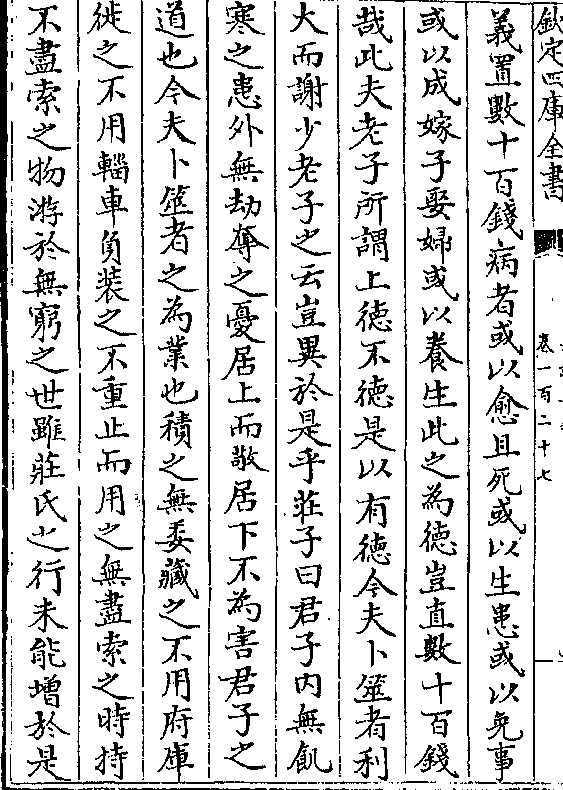 欽定四庫全書
卷一百二十七
義置數十百錢病者或以愈且死或以生患或以免事
或以成嫁子娶婦或以養生此之為德豈直數十百錢
哉此夫老子所謂上德不德是以有德今夫卜筮者利
大而謝少老子之云豈異於是乎莊子曰君子内無飢
寒之患外無劫奪之憂居上而敬居下不為害君子之
道也今夫卜筮者之為業也積之無委藏之不用府庫
徙之不用輜車負装之不重止而用之無盡索之時持
不盡索之物游於無窮之世雖莊氏之行未能增於是